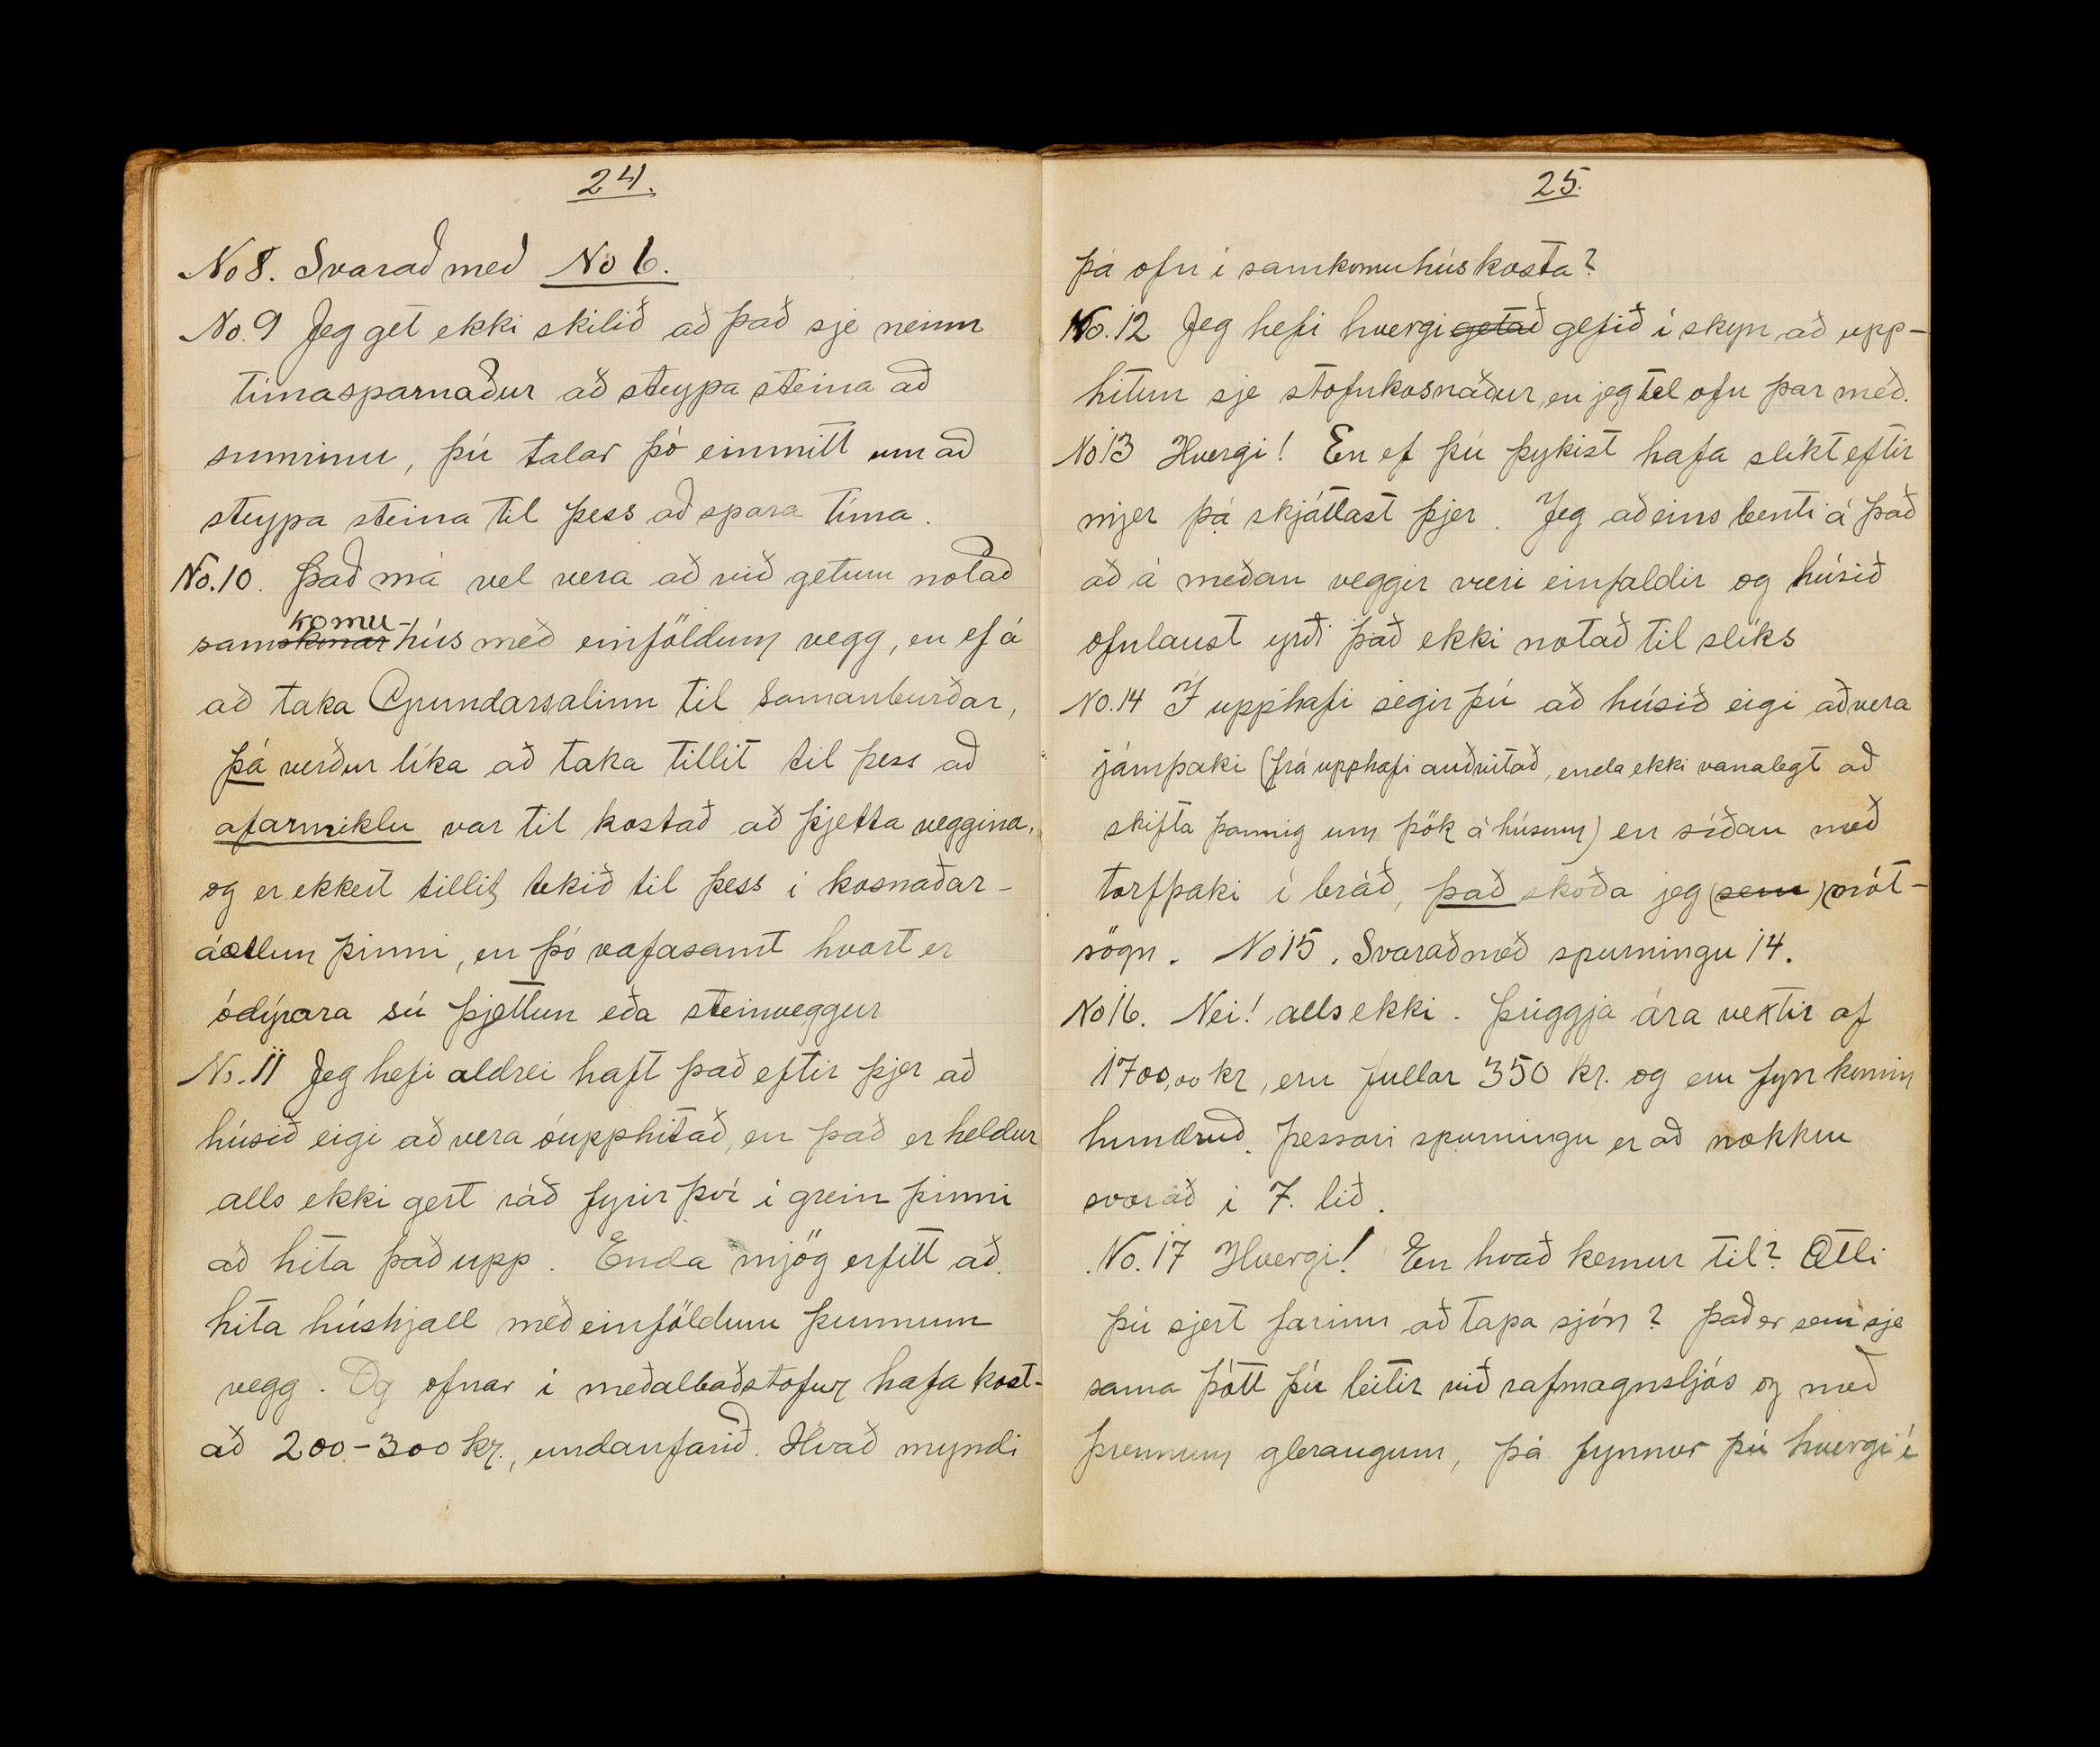 24.
No 8. Svarað með No 6.
No. 9 Jeg get ekki skilið að það sje neinn
tímasparnaður að steypa steina að
sumrinu, þú talar þó einmitt um að
steypa steina til þess að spara tíma.
No. 10. Það má vel vera að við getum notað
komu-
samskonar hús með einföldum vegg, en ef á
að taka Grundarsalinn til samanburðar,
þá verður líka að taka tillit til þess að
afarmiklu var til kostað að þjetta veggina,
og er ekkert tillit tekið til þess í kosnaðar-
áætlun þinni, en þó vafasamt hvort er
ódýrara sú þjettun eða steinveggur
No. 11 Jeg hefi aldrei haft það eftir þjer að
húsið eigi að vera óupphitað, en það er heldur
alls ekki gert ráð fyrir því í grein þinni
að hita það upp. Enda mjög erfitt að
hita húshjall með einföldum þunnum
vegg. Og ofnar í meðalbaðstofur hafa kost-
að 200-300 kr., undanfarið. Hvað myndi
25.
þá ofn í samkomuhús kosta?
No. 12 Jeg hefi hvergi getað gefið í skyn að upp-
hitun sje stofnkosnaður, en jeg tel ofn þar með.
No 13 Hvergi! En ef þú þykist hafa slíkt eftir
mjer þá skjátlast þjer. Jeg aðeins benti á það
að á meðan veggir væri einfaldir og húsið
ofnlaust yrði það ekki notað til slíks
No. 14 Í upphafi segir þú að húsið eigi að vera
járnþaki (frá upphafi auðvitað, enda ekki vanalegt að
skifta þannig um þök á húsum) en síðan með
torfþaki í bráð, það skoða jeg (sem) mót-
sögn. No 15. Svarað með spurningu 14.
No 16. Nei! alls ekki. Þriggja ára vextir af
1700,00 kr, eru fullar 350 kr. og eru fyr komin
hundruð. Þessari spurningu er að nokkru
svarað í 7. lið.
No. 17 Hvergi! En hvað kemur til? Ætli
þú sjert farinn að tapa sjón? Það er sem sje
sama þótt þú leitir við rafmagnsljós og með
þrennum gleraugum, þá fynnur þú hvergi í